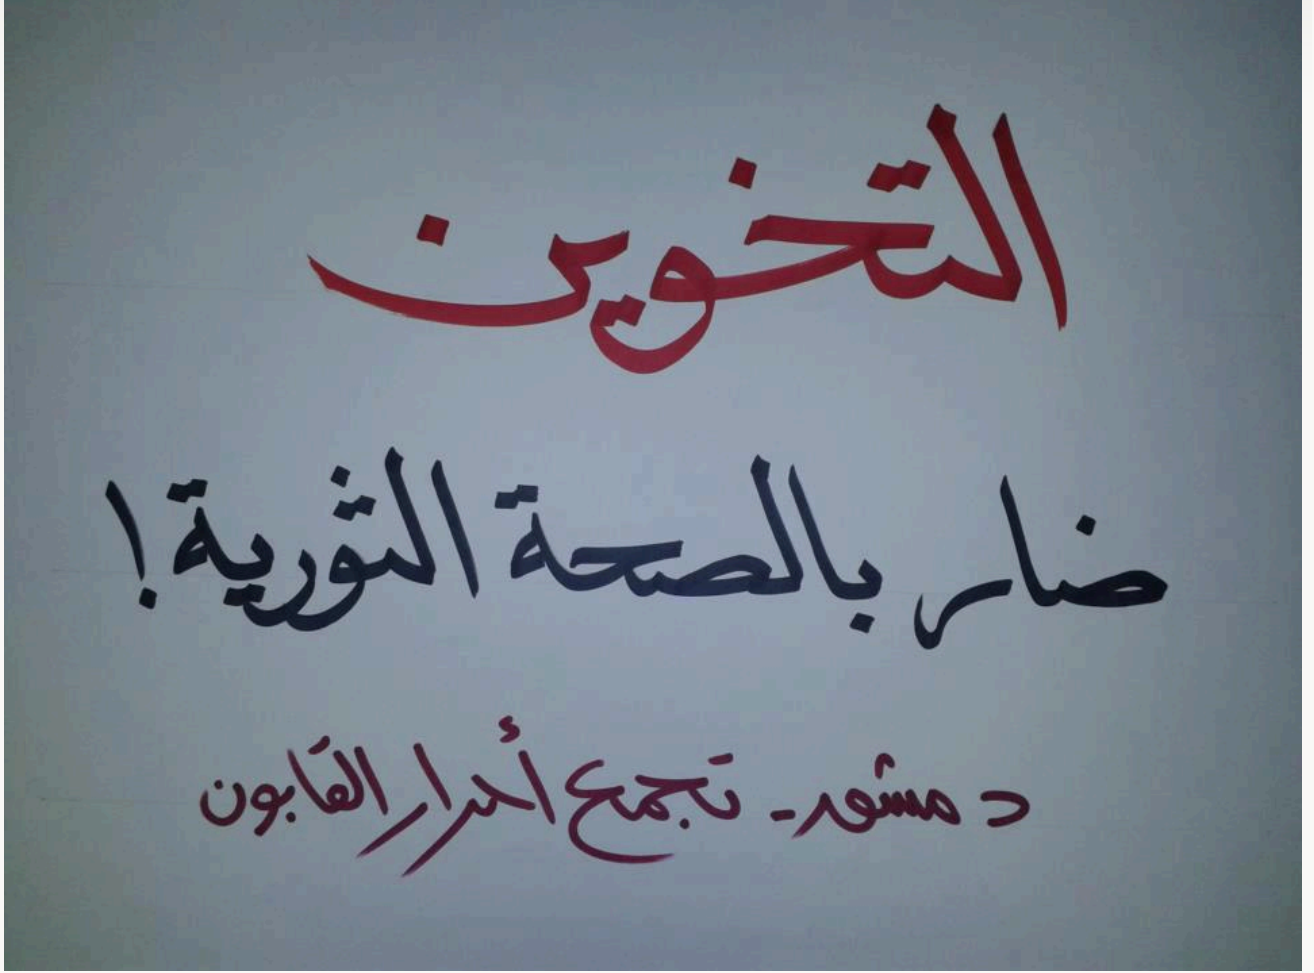 التخوين
ضار بالصحة الثورية!
دمشق - تجمع أحرار القابون